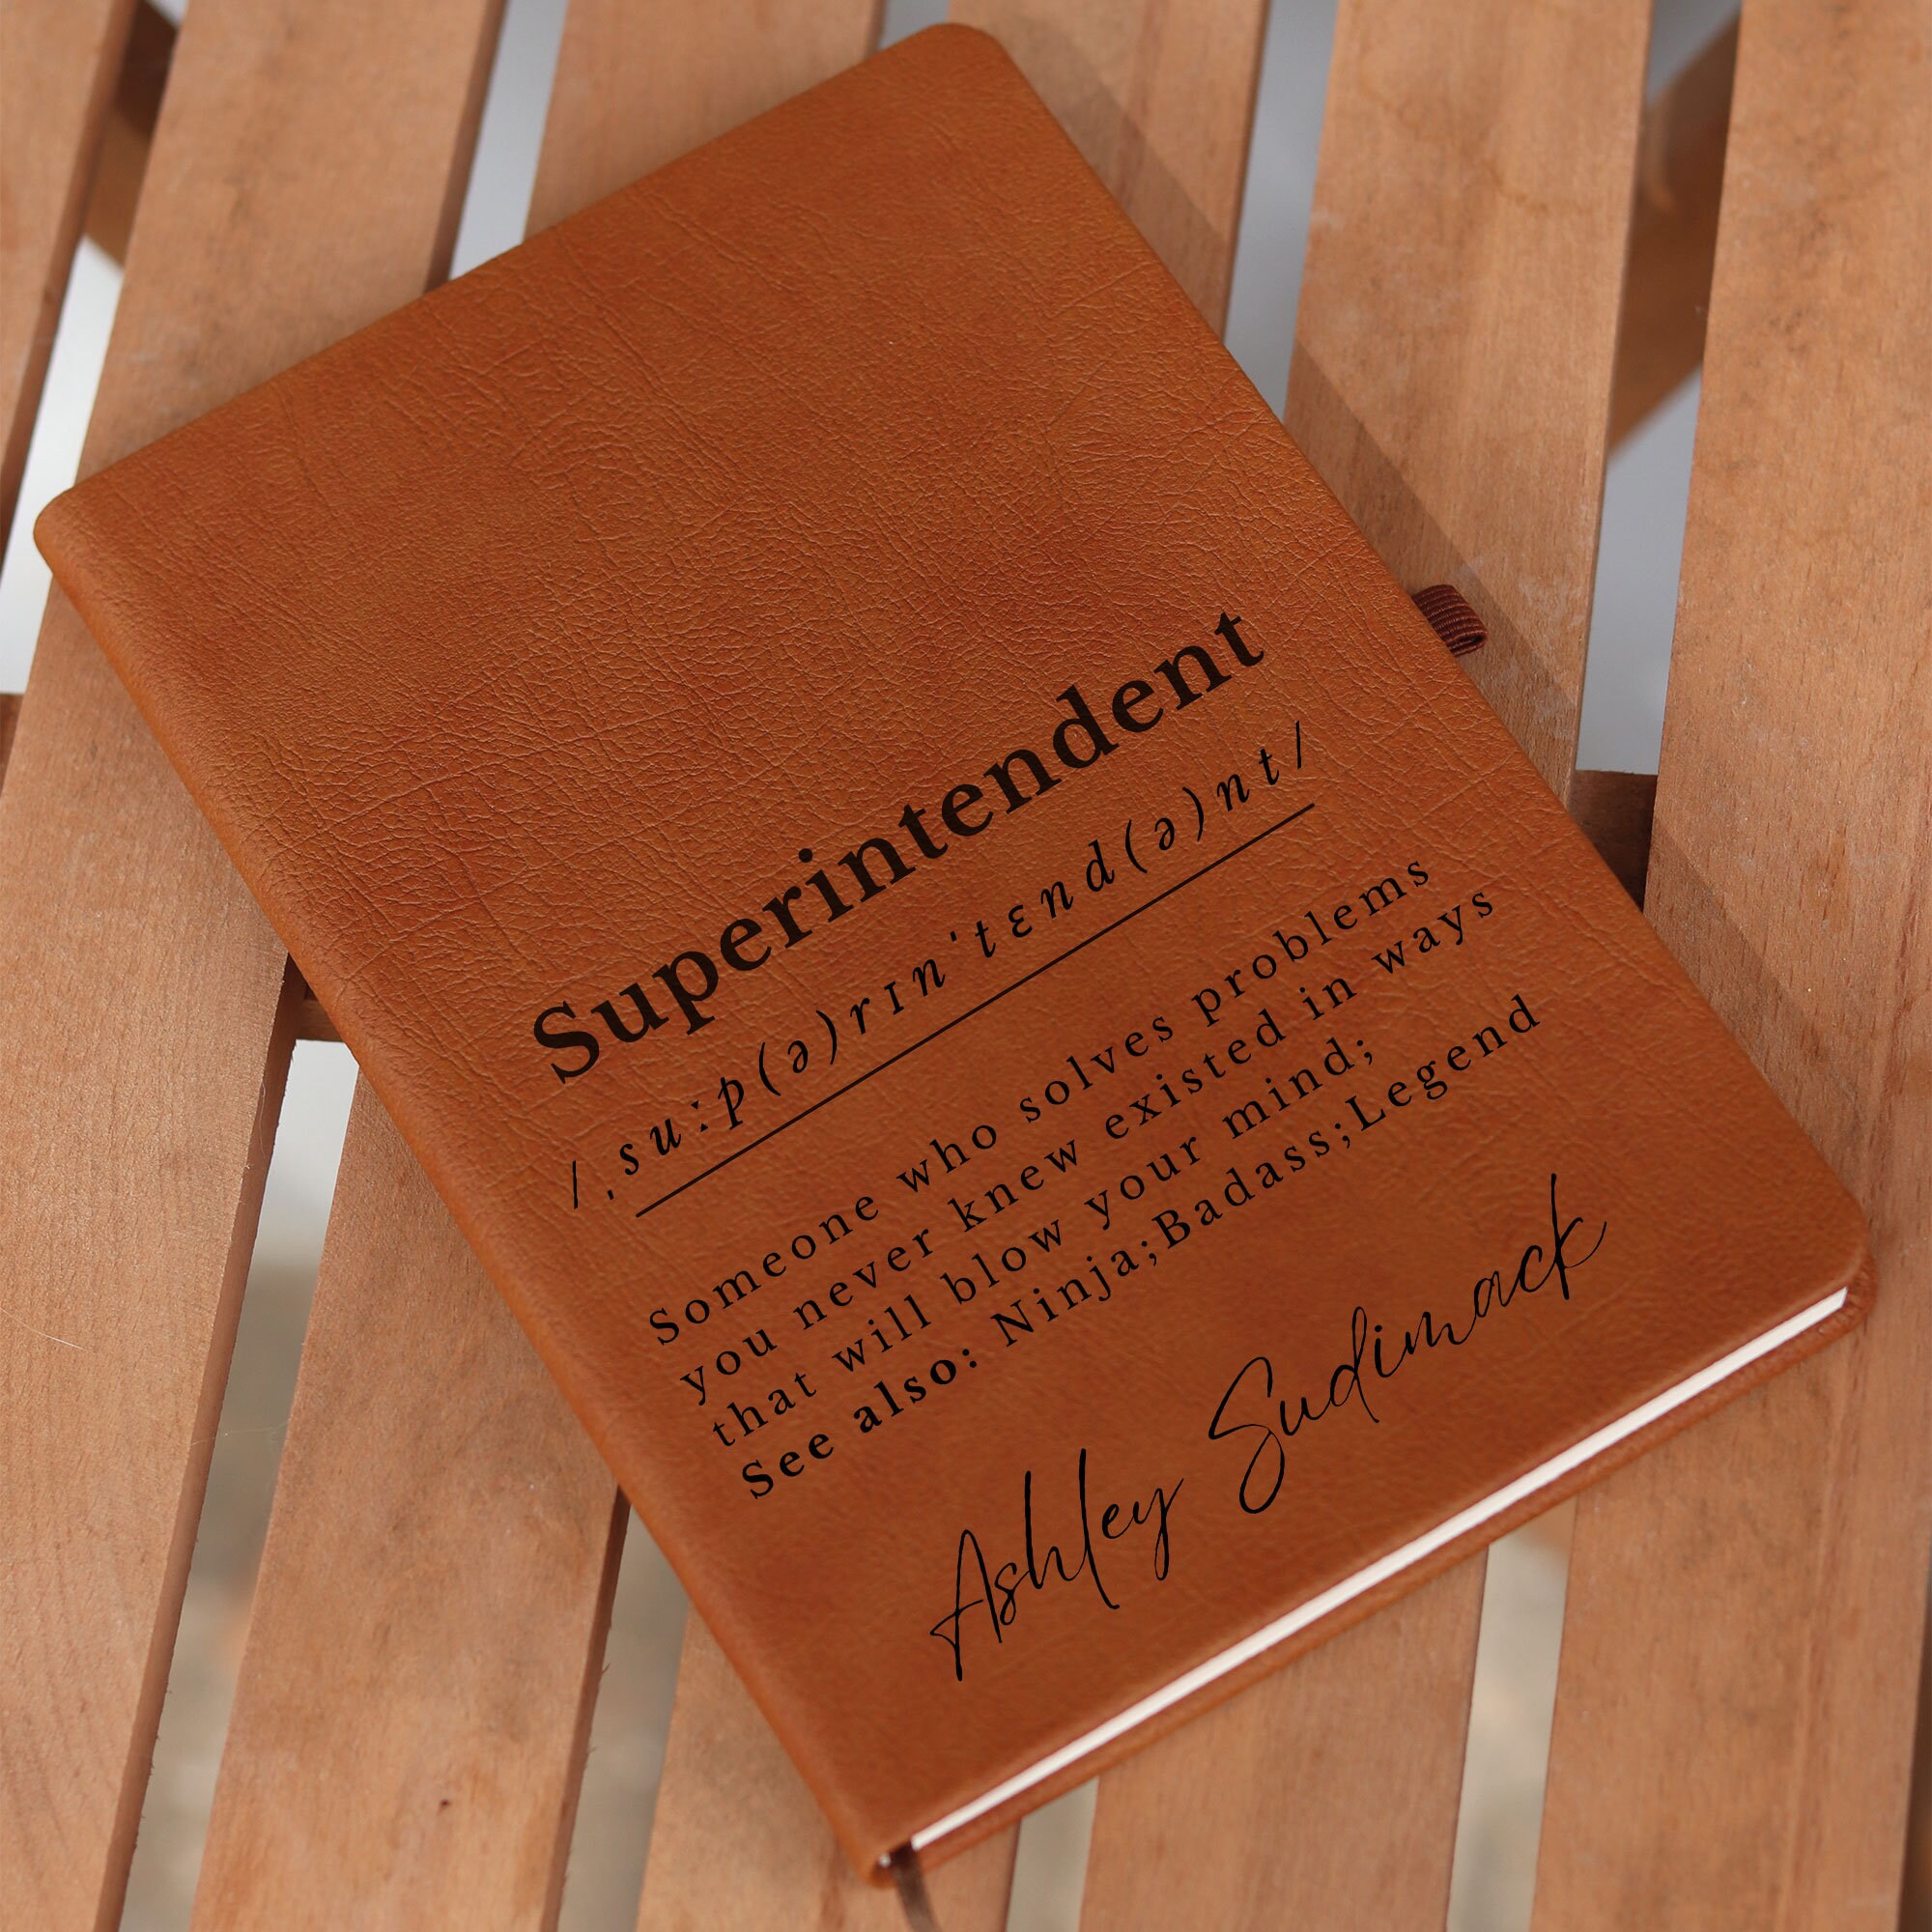 Superintendent
/ˌsuːp(ə)rɪnˈtɛnd(ə)nt/
Someone who solves problems
you never knew existed in ways
that will blow your mind;
See also: Ninja;Badass;Legend
Ashley Sudimack